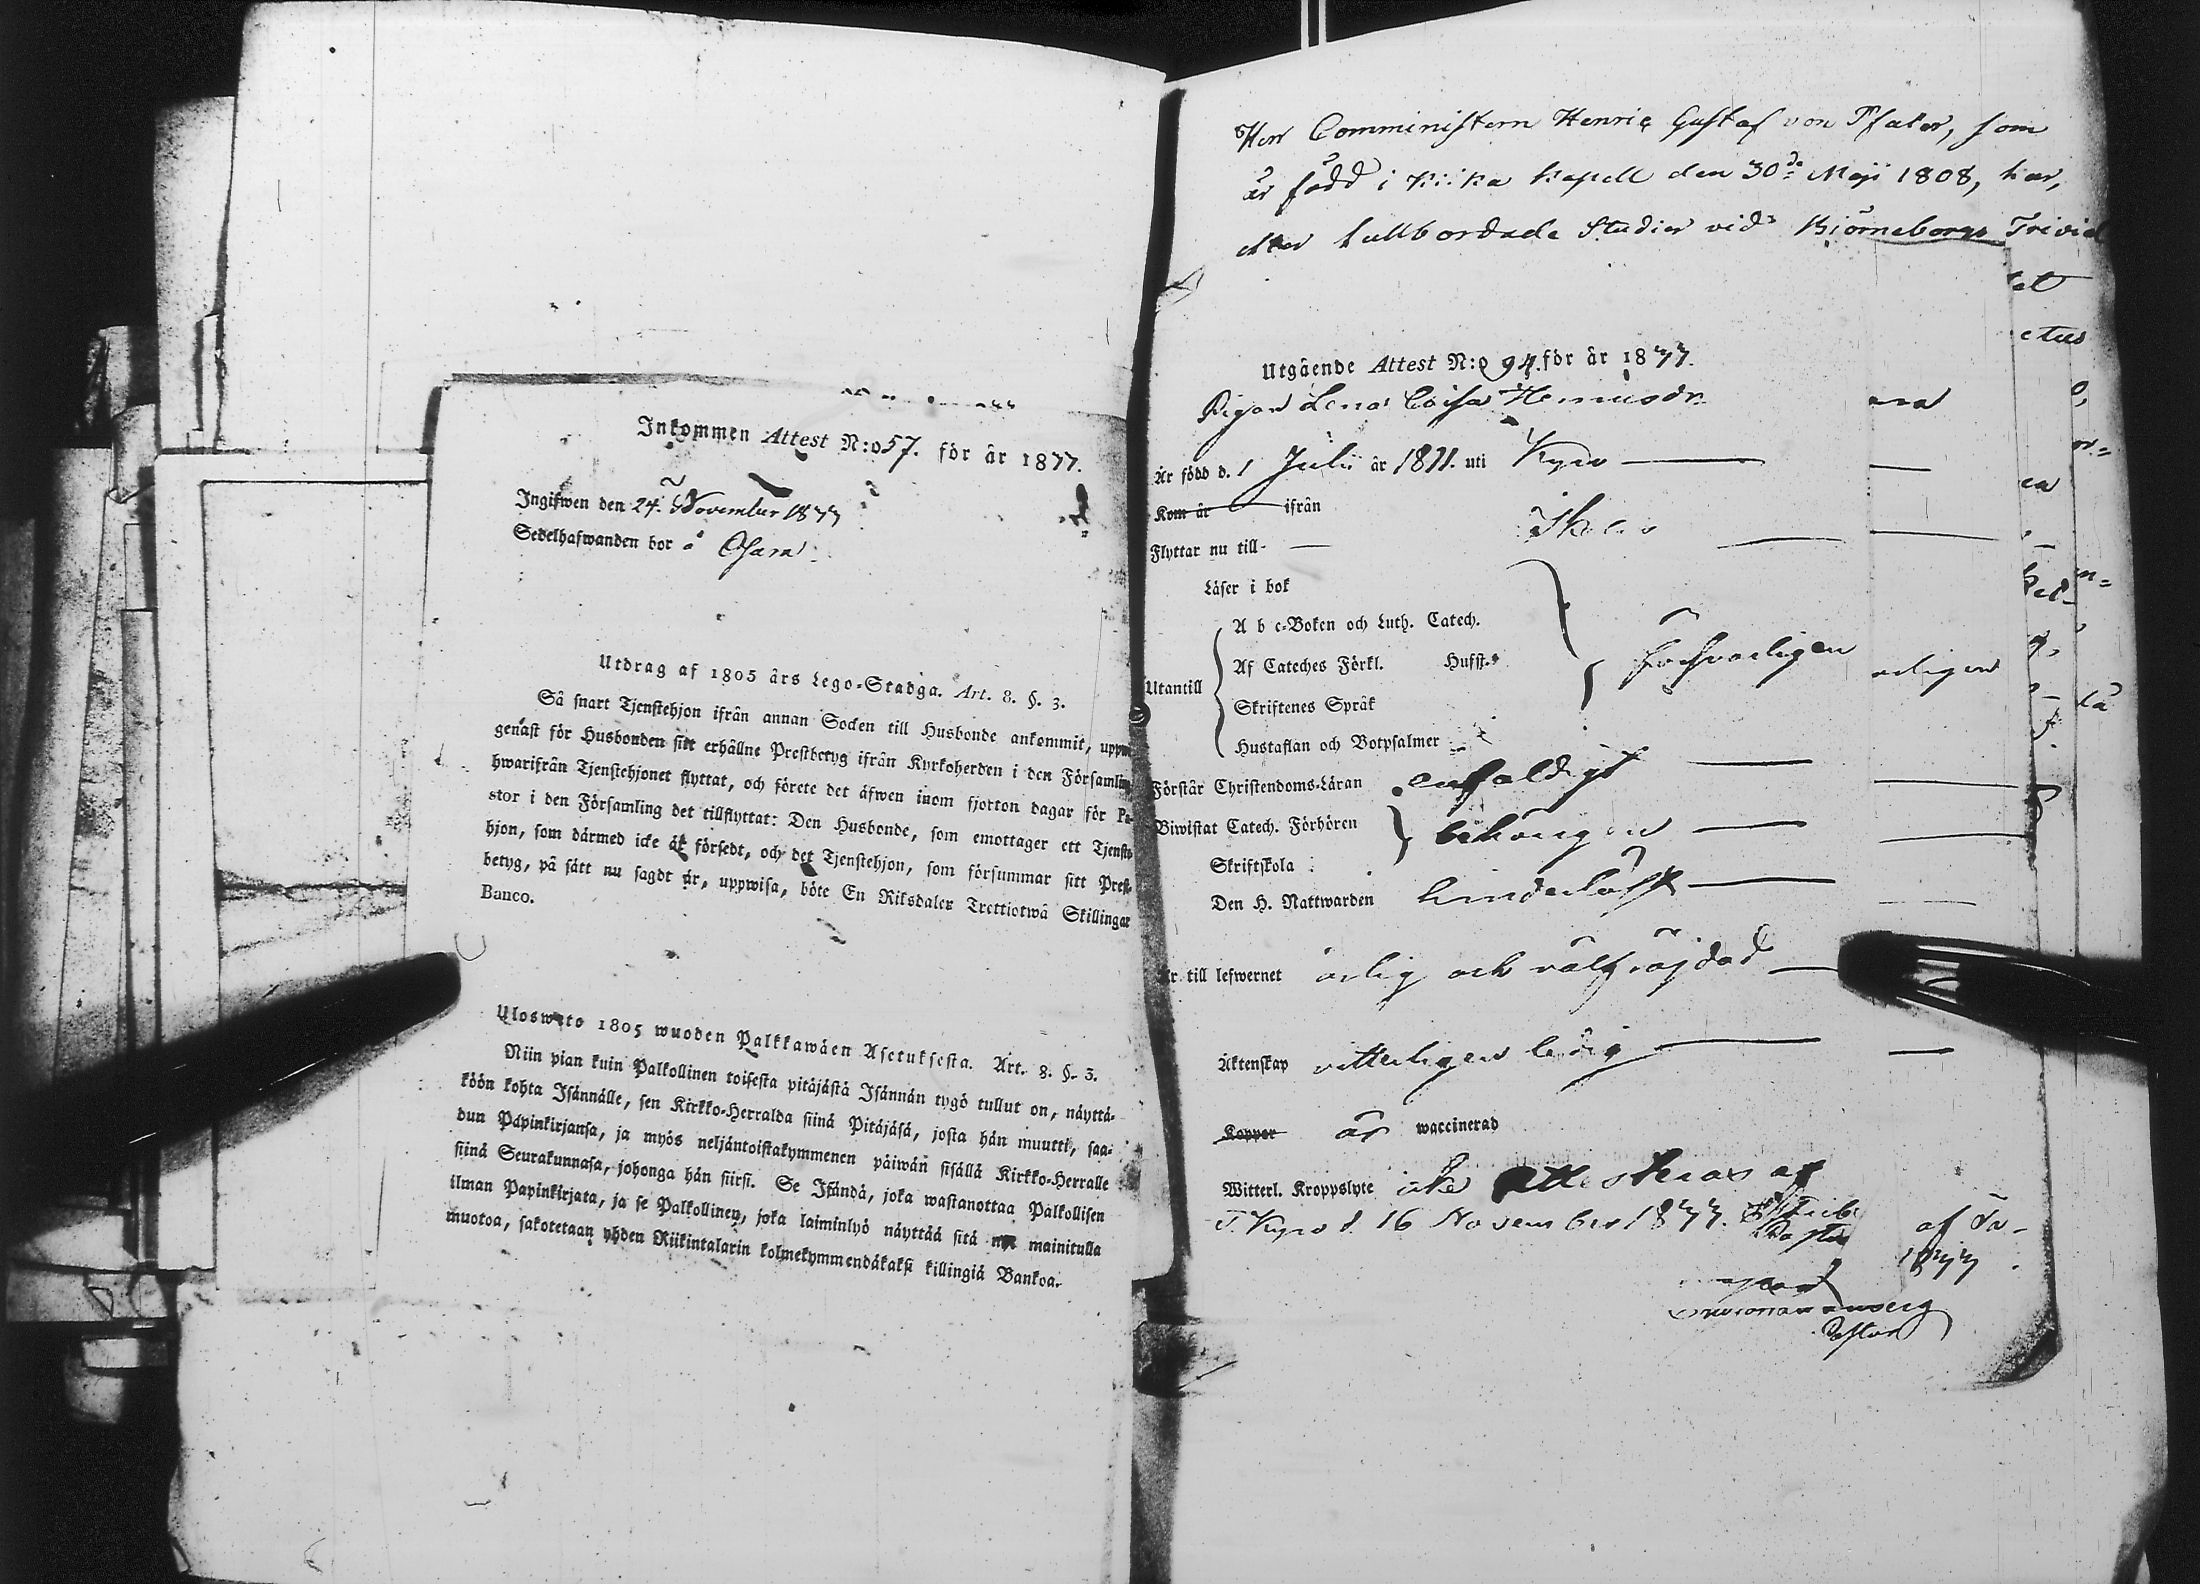 Inkommen Attest N:o 57. för år 1877.
Ingifwen den 24. November 1877
Sedelhafwanden bor å
Utdrag af 1805 års Lego-Stadga. Art. 8. §. 3.
Så snart Tjenstehjon ifrån annan Socken till Husbonde ankommit,
genast för Husbonden sitt erhållne Prestbetyg ifrån Kyrkoherden i den Församling
hwarifrån Tjenstehjonet flyttat, och förete det äfwen inom fjorton dagar för Pa-
stor i den Församling det tillflyttat: Den Husbonde, som emottager ett Tjenste-
hjon, som därmed icke är försedt, och det Tjenstehjon, som försummar sitt Prest-
betyg, på sätt nu sagdt är, uppwisa, böte En Riksdaler Trettiotwå Skillingar
Banco.
Uloswето 1805 wuoden Palkkawäen Asetuksesta. Art. 8. §. 3.
Niin pian kuin Palkollinen toisesta pitäjästä Isännän tygö tullut on, näyttä-
köön kohta Isännälle, sen Kirkko-Herralda siinä Pitäjäsä, josta hän muutti, saa-
dun Papinkirjansa, ja myös neljäntoistakymmenen päiwän sisällä Kirkko-Herralle
siinä Seurakunnasa, johonga hän siirsi. Se Isändä, joka wastanottaa Palkollisen
ilman Papinkirjata, ja se Palkollinen, joka laiminlyö näyttää sitä nyt mainitulla
muotoa, sakotetaan yhden Riikintalarin kolmekymmendäkaksi killingiä Bankoa.
Herr Comministern Henric Gustaf von Pfaler, som
är född i Kiika Kapell den 30de Maji 1808, har,
efter fullbordade Studier vid Björneborgs Trivial
Utgående Attest N:o 94. för år 1877.
Pigan Lena Caisa Henricsdr
Är född d. 1 Julii år 1811. uti Kyro
Kom år ifrån
Flyttar nu till Ikalis
Läser i bok
A b c-Boken och Luth. Catech.
Af Cateches Förkl. Husst.
Utantill försvarligen
Skriftenes Språk
Hustaflan och Botpsalmer
Förstår Christendoms-Läran enfaldigt
Biwistat Catech. Förhören behörigen
Skriftskola
Den H. Nattwarden hinderlöst
Är till lefwernet ärlig och välfräjdad
Äktenskap vitterligen ledig
Kopper är waccinerad
Witterl. Kroppslyte icke attesteras af
T. Kyro d. 16 November 1877.
af Ta-
1877.
Pastor